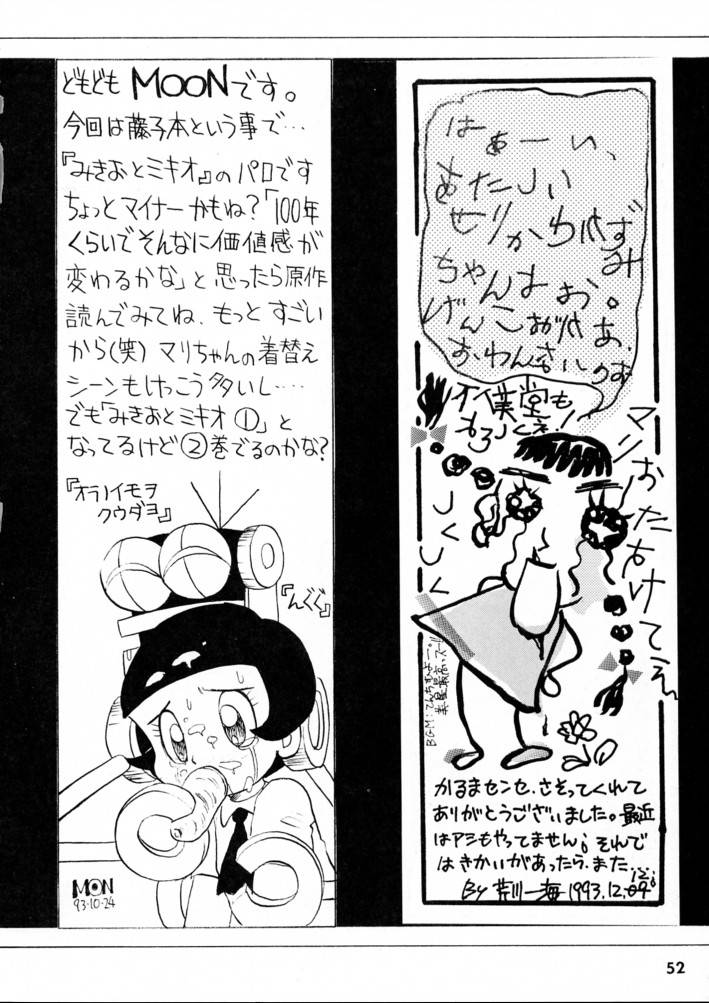 どもども MOONです。
今回は藤子本という事で…
『みきおとミキオ』のパロです
ちょっとマイナーかもね?「100年
くらいでそんなに価値感が
変わるかな」と思ったら原作
読んでみてね、もっとすごい
から(笑) マリちゃんの着替え
シーンもけっこう多いし‥‥
でも「みきおとミキオ①」と
なってるけど②巻でるのかな?
『オラノイモヲ
クウダヨ』
『んぐぐ』
MOON
93・10・24
はぁーい、
あたしい
せりかわはずみ
ちゃんよぉ。
げんこぉがはぁ、
マリおたすけてぇ
しくしく
かるまセンセ、さそってくれて
ありがとうございました。最近
はアシもやってません;それで
はきかいがあったら、また
By 芹川一海 1993.12.
52